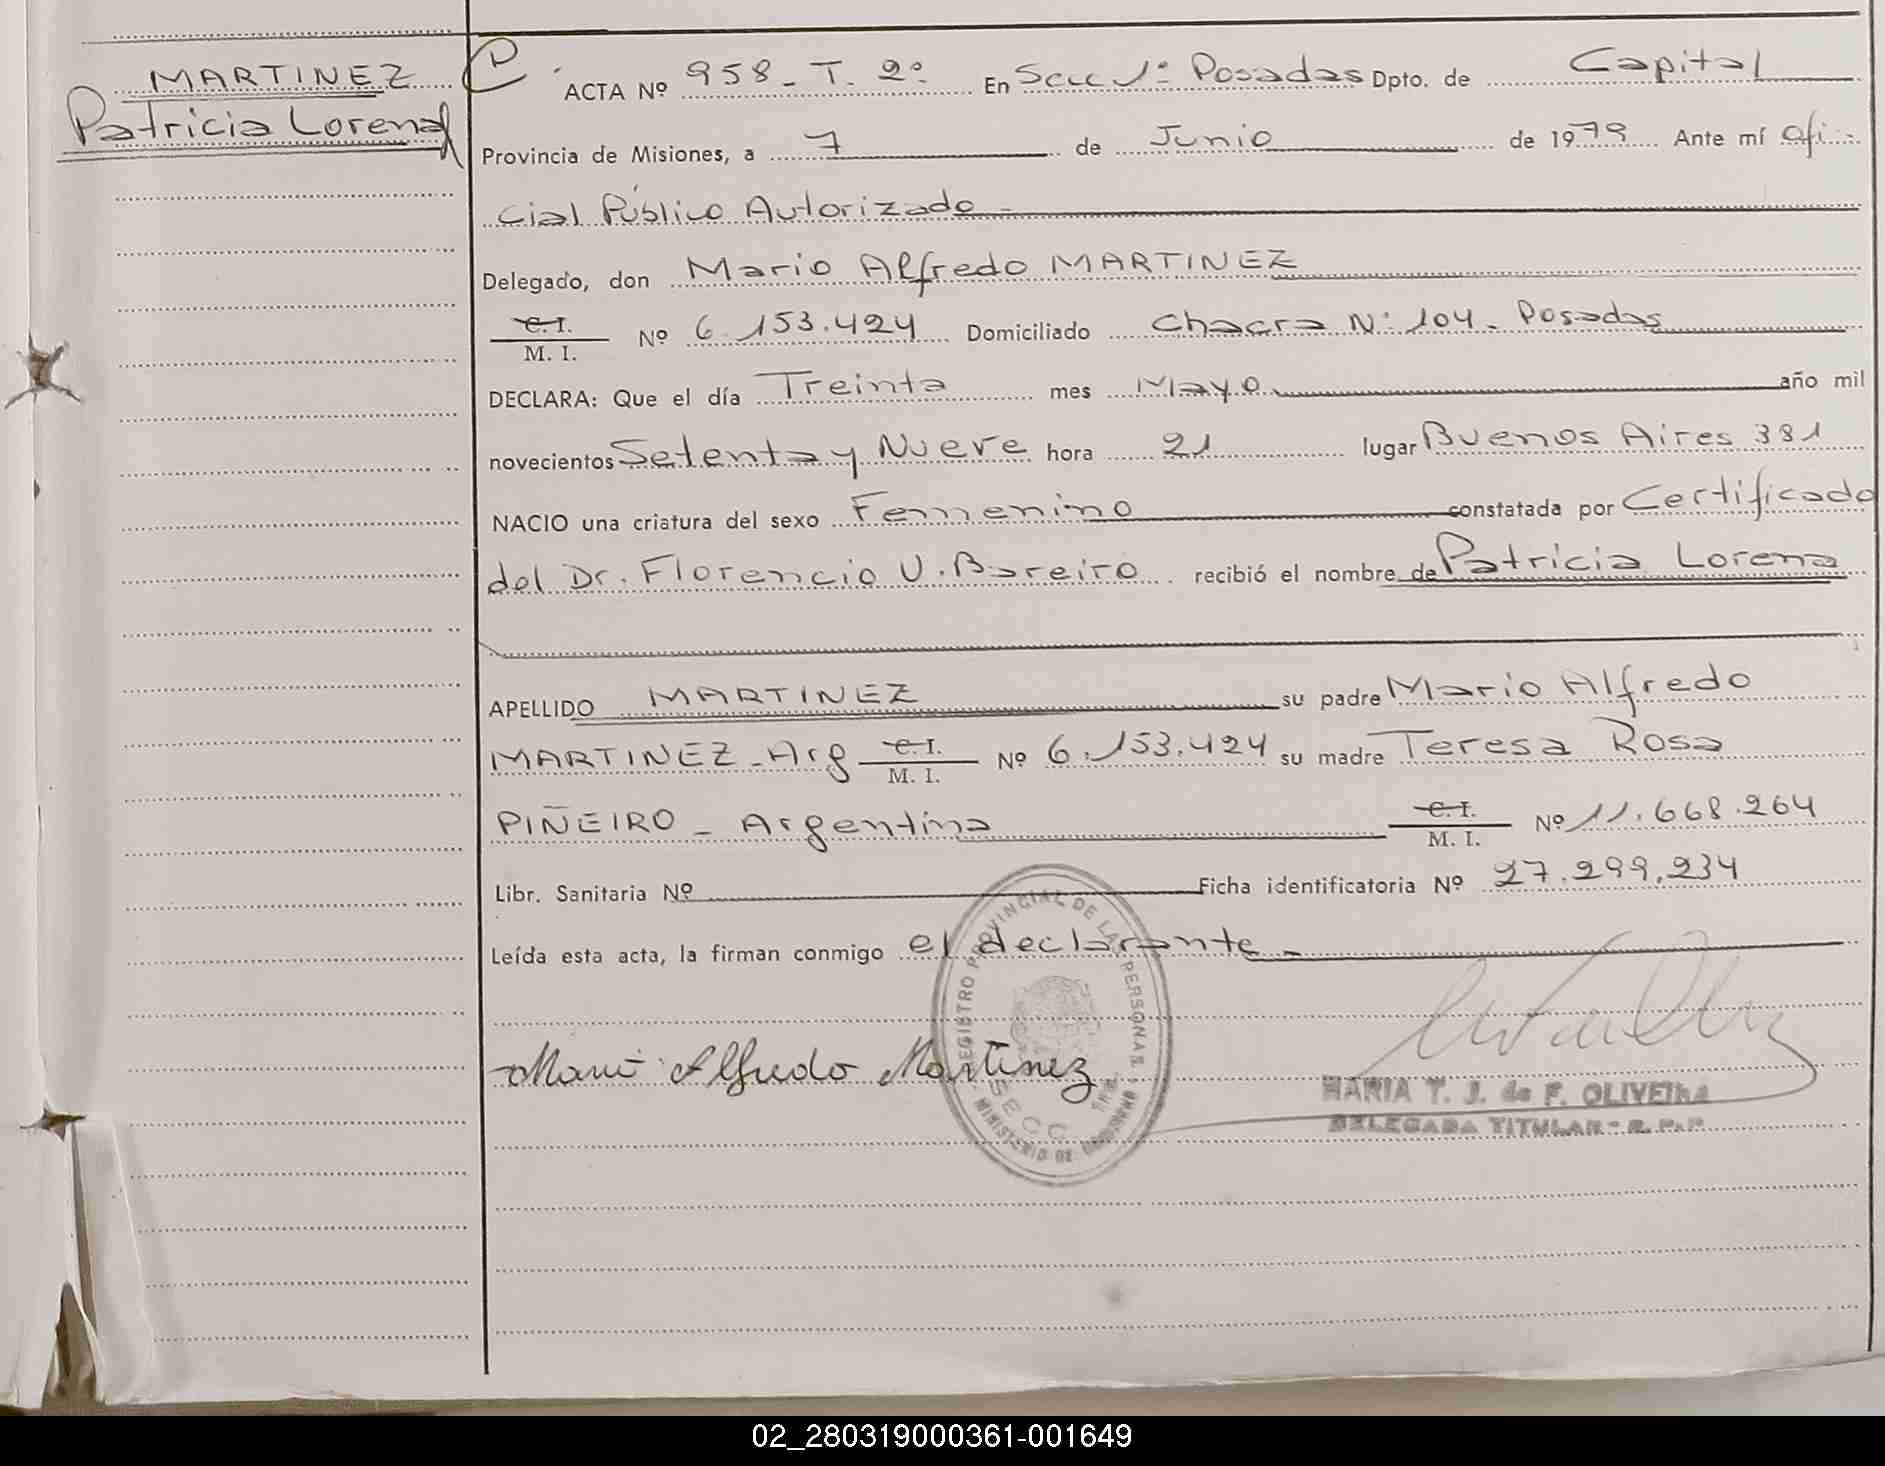 MARTINEZ
Patricia Lorena
ACTA Nº 958 - T. 2º En Secc 1º Posadas Dpto. de Capital
Provincia de Misiones, a 7 de Junio de 1979 Ante mí Ofi-
cial Público Autorizado -
Delegado, don Mario Alfredo MARTINEZ
C. I.
M. I. Nº 6.153.424 Domiciliado Chacra Nº 104 - Posadas
DECLARA: Que el día Treinta mes Mayo año mil
novecientos Setenta y Nueve hora 21 lugar Buenos Aires 381
NACIO una criatura del sexo Femenino constatada por Certificado
del Dr. Florencio U. Bareiro recibió el nombre de Patricia Lorena
APELLIDO MARTINEZ su padre Mario Alfredo
MARTINEZ - Arg C. I. M. I. Nº 6.153.424 su madre Teresa Rosa
PIÑEIRO - Argentina C. I. M. I. Nº 11.668.264
Libr. Sanitaria Nº Ficha identificatoria Nº 27.299.234
Leída esta acta, la firman conmigo el declarante -
REGISTRO PROVINCIAL DE LAS PERSONAS
SECC
MINISTERIO DE GOBIERNO
Mario Alfredo Martinez
MARIA T. J. de F. OLIVEIRA
DELEGADA TITULAR - R. P. P
02_280319000361-001649